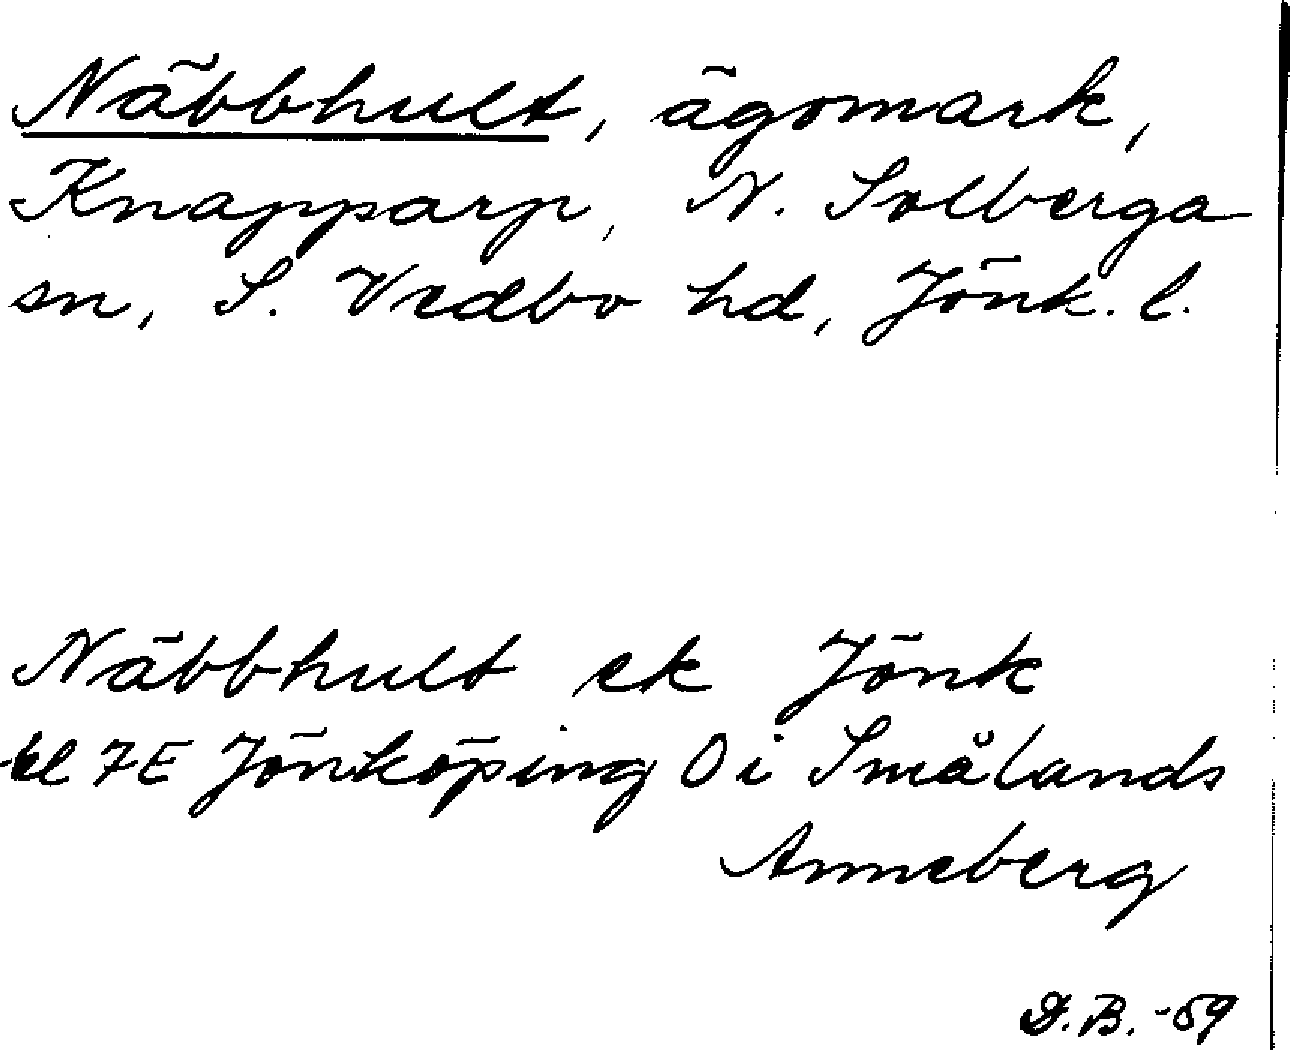 Näbbhult, ägomark,
Knapparp, N. Solberga
sn, S. Vedbo hd, Jönk. l.
Näbbhult ek Jönk
bl 7E Jönköping O i Smålands
Anneberg
D.B. -59